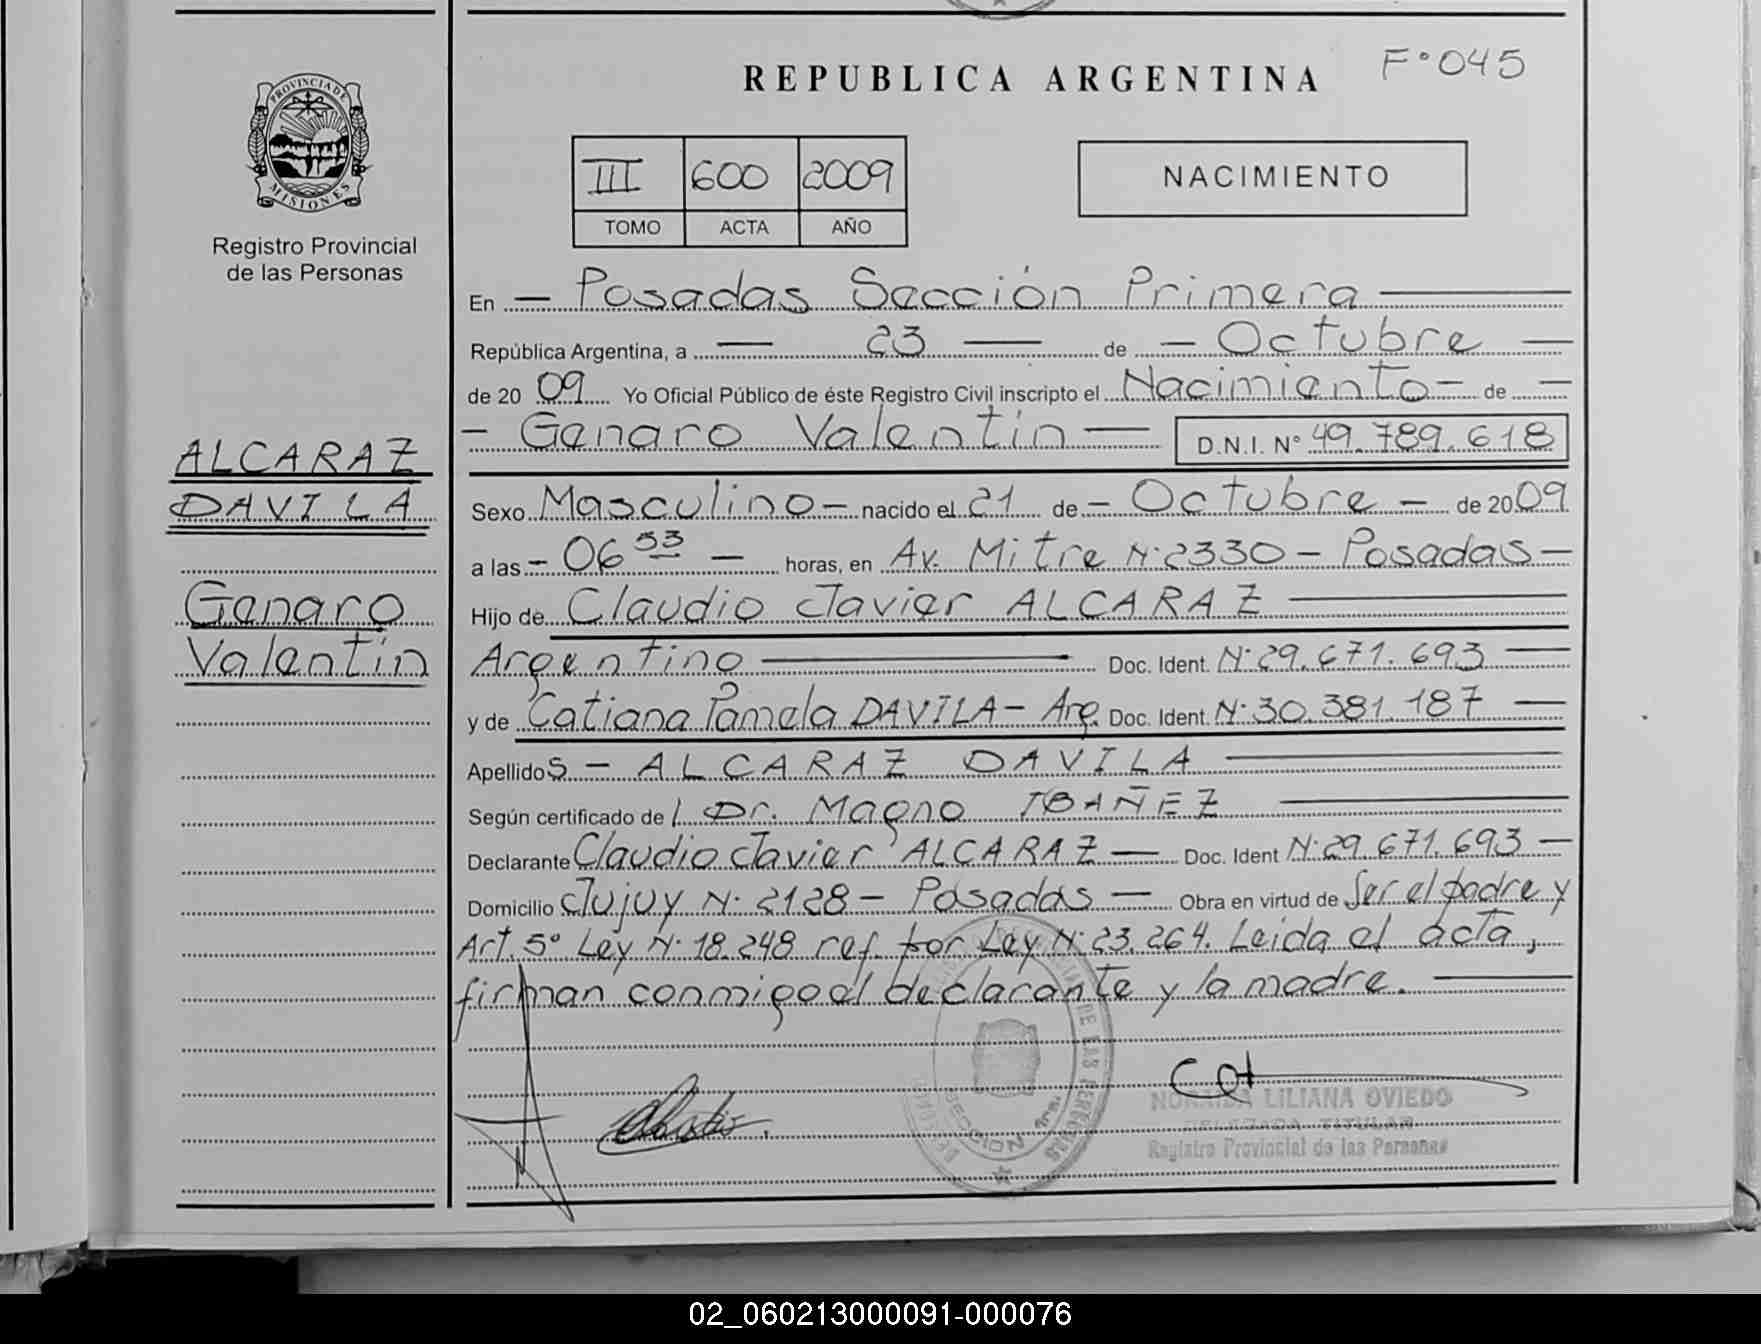 F° 045
REPUBLICA ARGENTINA
PROVINCIA DE
MISIONES
Registro Provincial
de las Personas
III 600 2009
TOMO ACTA AÑO
NACIMIENTO
En — Posadas Sección Primera —
República Argentina, a — 23 — de — Octubre —
de 20 09 Yo Oficial Público de éste Registro Civil inscripto el Nacimiento — de —
— Genaro Valentín — D.N.I. N° 49.789.618
ALCARAZ
DAVILA
Genaro
Valentín
Sexo Masculino — nacido el 21 de — Octubre — de 2009
a las — 06 53 — horas, en Av. Mitre N° 2330 — Posadas —
Hijo de Claudio Javier ALCARAZ —
Argentino — Doc. Ident. N° 29.671.693 —
y de Catiana Pamela DAVILA — Arg. Doc. Ident. N° 30.381.187 —
Apellidos — ALCARAZ DAVILA —
Según certificado de l Dr. Magno IBAÑEZ —
Declarante Claudio Javier ALCARAZ — Doc. Ident N° 29.671.693 —
Domicilio Jujuy N° 2128 — Posadas — Obra en virtud de Ser el padre y
Art. 5° Ley N° 18.248 ref. por Ley N° 23.264. Leida el acta,
firman conmigo el declarante y la madre. —
DE LAS PERSONAS
SECCION 1ra.
NORAIDA LILIANA OVIEDO
DELEGADA TITULAR
Registro Provincial de las Personas
02_060213000091-000076